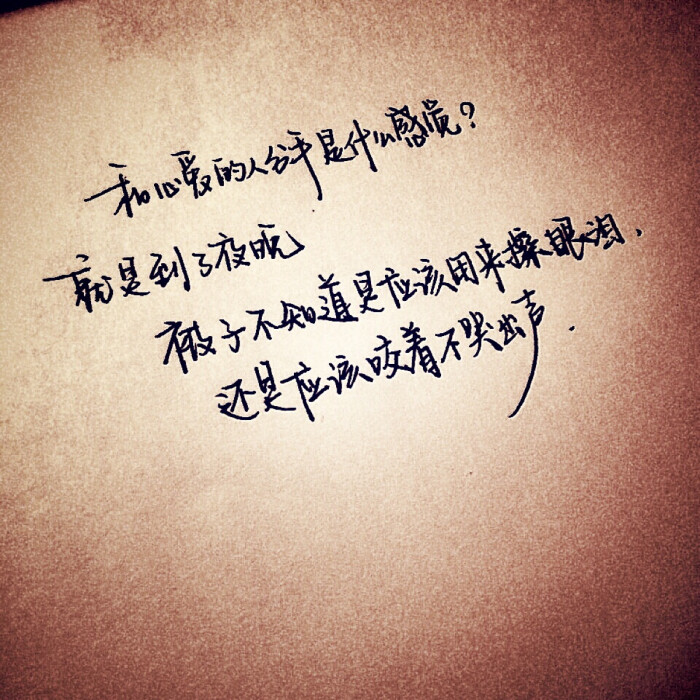 和心爱的人分手是什么感觉?
就是到了夜晚
被子不知道是应该用来擦眼泪.
还是应该咬着不哭出声.